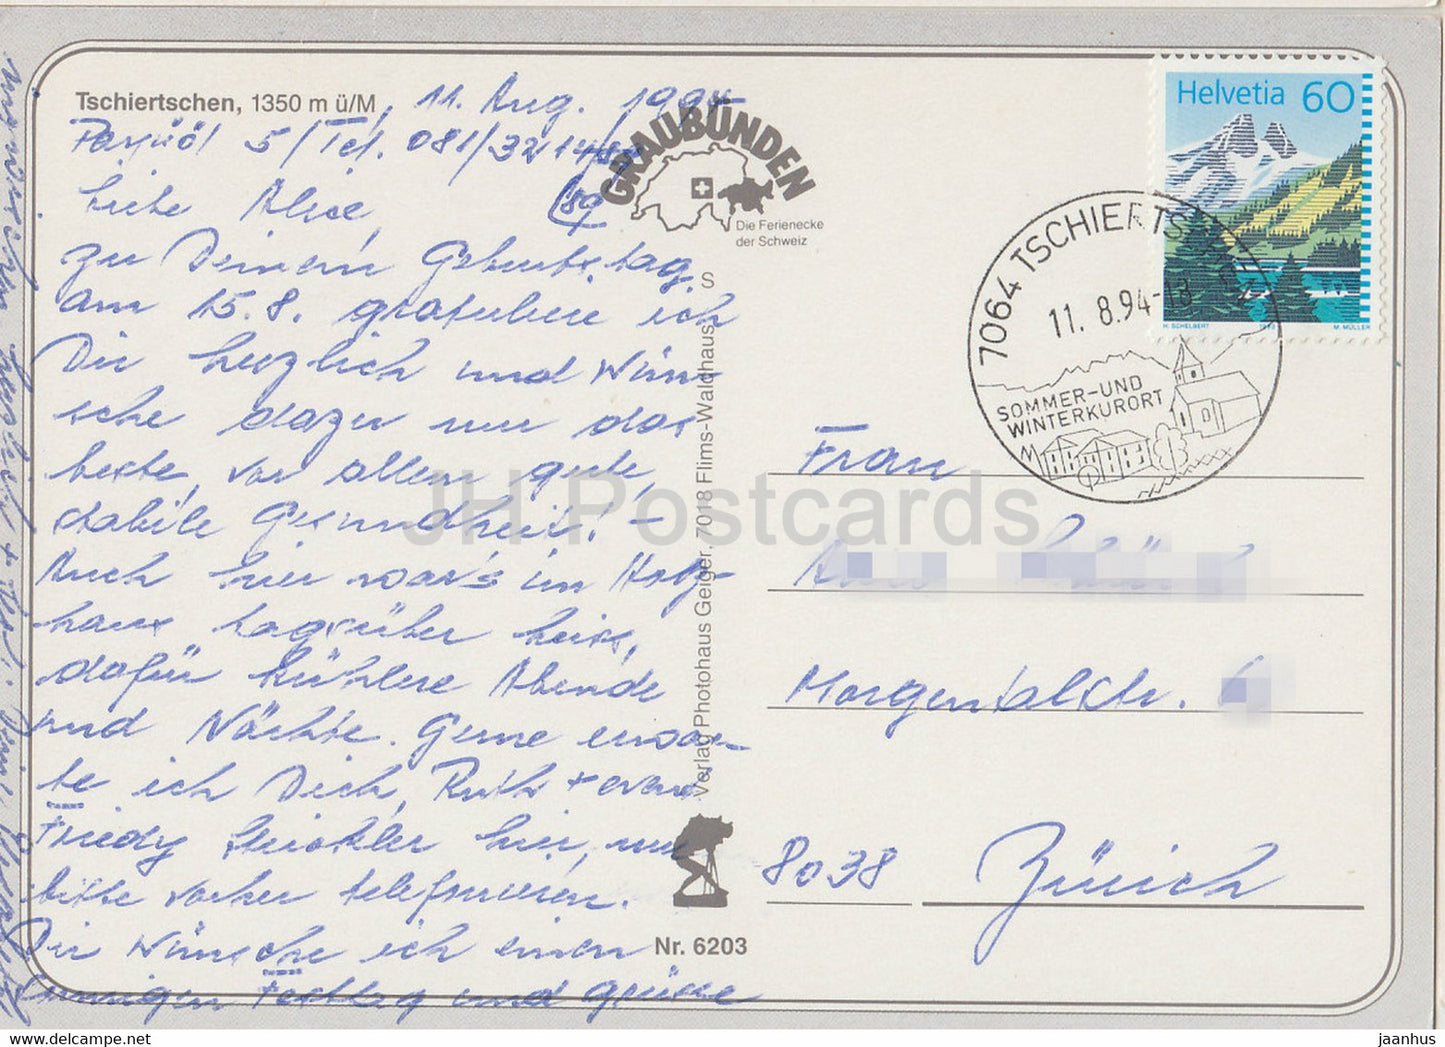 Tschiertschen, 1350 m ü/M, 11. Aug. 1994
5/Tel. 081/32 14
Liebe Alice,
zu Deinem Geburtstag
am 15.8. gratuliere ich
Dir herzlich und wün-
sche dazu nur das
beste, vor allem gute,
stabile Gesundheit! –
Auch hier war's im Holz-
haus tagsüber heiss,
dafür kühlere Abende
und Nächte. Gerne erwar-
te ich Dich, Ruth + even.
Friedy hier, nur
bitte vorher telefonieren.
Dir wünsche ich einen
sonnigen Festtag und grüsse
GRAUBÜNDEN
Die Ferienecke
der Schweiz
Verlag Photohaus Geiger, 7018 Flims-Waldhaus S
Nr. 6203
Helvetia 60
H. SCHELBERT
M. MÜLLER
7064 TSCHIERTSCHEN
11. 8.94-18
SOMMER-UND
WINTERKURORT
Frau
Morgentalstr.
8038 Zürich
JH Postcards
https://jhpostcards.com
jaanhus